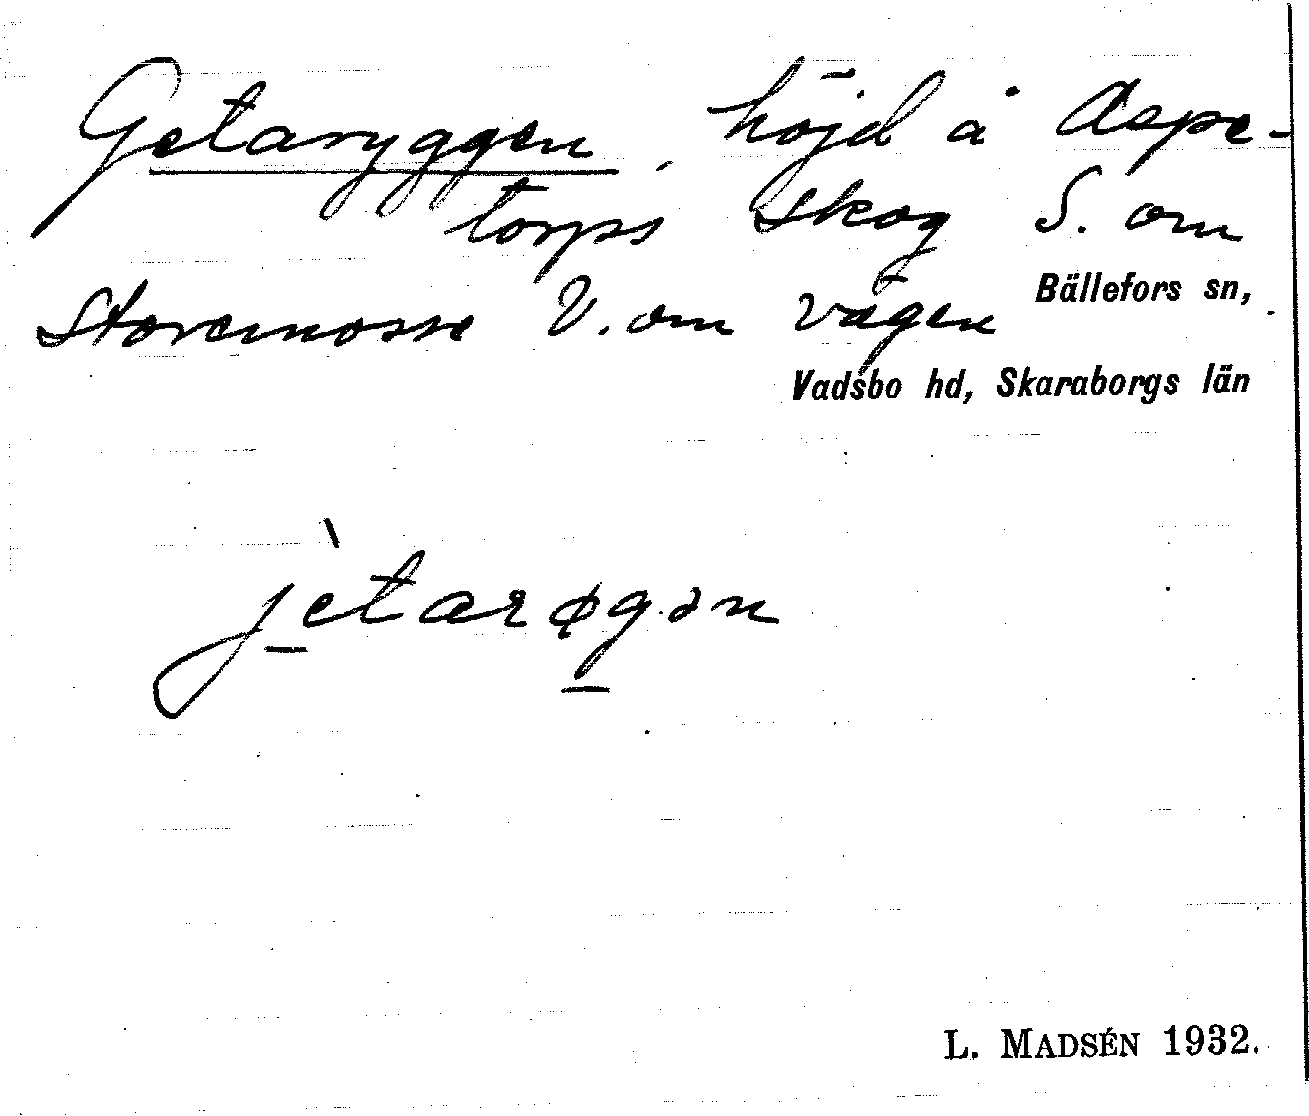 Getaryggen, höjd å Aspe-
torps skog S. om
Storemosse V. om vägen
Bällefors sn,
Vadsbo hd, Skaraborgs län
jètarøgən
L. MADSÉN 1932.